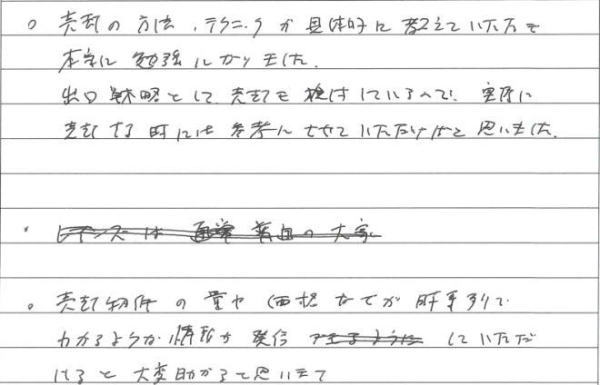 ○ 売却の方法、テクニックが具体的に教えていただき
本当に勉強になりました。
出口戦略として、売却も検討しているので、実際に
売却する時には参考にさせていただければと思いました。
・ レインズは 通常 の大家
○ 売却物件の量や価格などが所要引で
わかるような情報が発信できるように していただ
けると大変助かると思います